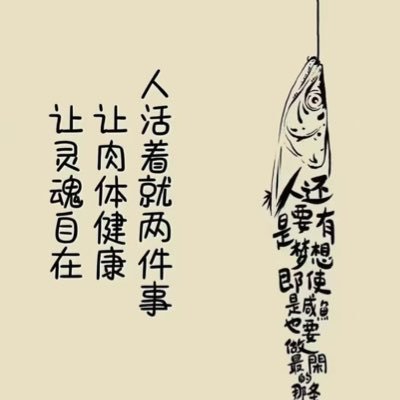 人活着就两件事
让肉体健康
让灵魂自在
人还是要有梦想
即使是咸魚
也要做最閑的那条